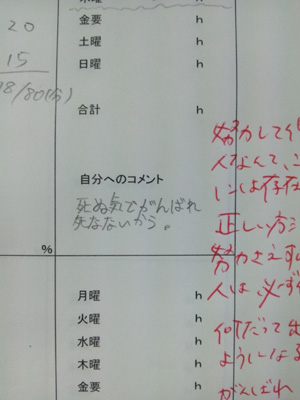 木曜 h
金要 h
20
土曜 h
15
日曜 h
合計 h
自分へのコメント
死ぬ気でがんばれ
死なないから。
%
月曜 h
火曜 h
水曜 h
木曜 h
金要 h
努力して
人なんて、こ
には存在
正しい方
努力さえす
人は、必ず
何だって出
ようになる
がんばれ